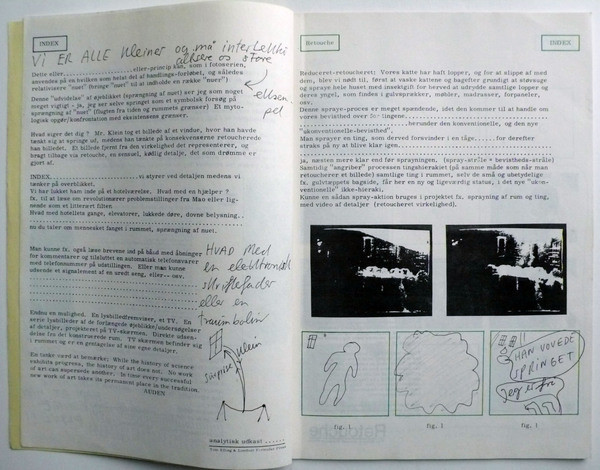 INDEX
VI ER ALLE Kleiner og må intellektu
alisere os større
Dette eller..............eller-princip kan, som i fotoserien,
anvendes på en hvilken som helst del af handlings-forløbet, og således
relativisere "nuet" (bringe "nuet" til at indholde en række "nuer")
eksem
pel
Denne "udvidelse" af øjeblikket (sprængning af nuet) ser jeg som noget
meget vigtigt - ja, jeg ser selve springet som et symbolsk forsøg på
sprængning af "nuet" (Dagens fra tiden og rummets grænser) Et myto-
logisk opgør/konfrontation med eksistensens grænser.
Hvad siger det dig ? Mr. Klein tog et billede af et vindue, hvor han havde
tænkt sig at springe ud, medens han tænkte på konsekvenserne retoucherede
han billedet. Et billede fjernt fra den virkelighed det representerer, og
bragt tilbage via retouche, en sensuel, kødlig detalje, det som drømme er
gjort af.
INDEX..........................vi styrer ved detaljen medens vi
tænker på overblikket.
Vi har lukket ham inde på et hotelværelse. Hvad med en hjælper ?
fx. til at løse om revolutionære problemstillinger fra Mao eller lig-
nende som et litterært filter.
Hvad med hotellets gange, elevatorer, lukkede døre, dovne belysning..
nu du taler om mennesket fanget i rummet, sprængning af nuet.
Man kunne fx. også læse brevene ind på bånd med åbninger
for kommentarer og tilslutte en automatisk telefonsvarer
med telefonnummer på udstillingen. Eller man kunne
udsende et signalement af en uredt seng, eller-- osv.
HVAD MED
en elektronisk
skriftefader
eller en
trampbolin
Endnu en mulighed. En lysbilledfremviser, et TV. En
serie lysbilleder af de forlængede øjeblikke/undersøgelser
af detaljer, projekteret på TV-skærmen. Direkte udsen-
delse fra det konstruerede rum. TV skærmen befinder sig
i rummet og er en gentagelse af sine egne detaljer.
surprise Klein
En tanke værd at bemærke: While the history of science
exhibits progress, the history of art does not. No work
of art can supersede another. In time every successful
new work of art takes its permanent place in the tradition.
AUDEN
analytisk udkast
Retouche
INDEX
Reduceret-retoucheret: Vores katte har haft lopper, og for at slippe af med
dem, blev vi nødt til, først at vaske kattene og bagefter grundigt at støvsuge
og spraye hele huset med insektgift for herved at udrydde samtlige lopper og
deres yngel, som findes i gulvsprækker, møbler, madrasser, fodpaneler,
osv........
Denne spraye-proces er meget spændende, idet den kommer til at handle om
vores bevisthed over 10-tingene...............................
.....................herunder den konventionelle, og den nye
"ukonventionelle-bevisthed".
Man sprayer en ting, som derved forsvinder i en tåge,......for derefter
straks på ny at blive klar igen..............................
ja, næsten mere klar end før sprayningen, (spray-stråle + bevistheds-stråle)
Samtidig "angriber" processen tingshierakiet (på samme måde som når man
retoucherer et billede) samtlige ting i rummet, selv de små og ubetydelige
fx. gulvtæppets bagside, får her en ny og ligeværdig status, i det nye "ukon-
ventionelle" ikke-hieraki.
Kunne en sådan spray-aktion bruges i projektet fx. sprayning af rum og ting,
med video af detaljer (retoucheret virkelighed).
HAN VOVEDE
SPRINGET
Jeg er fri
fig. 1
fig. 1
fig. 1